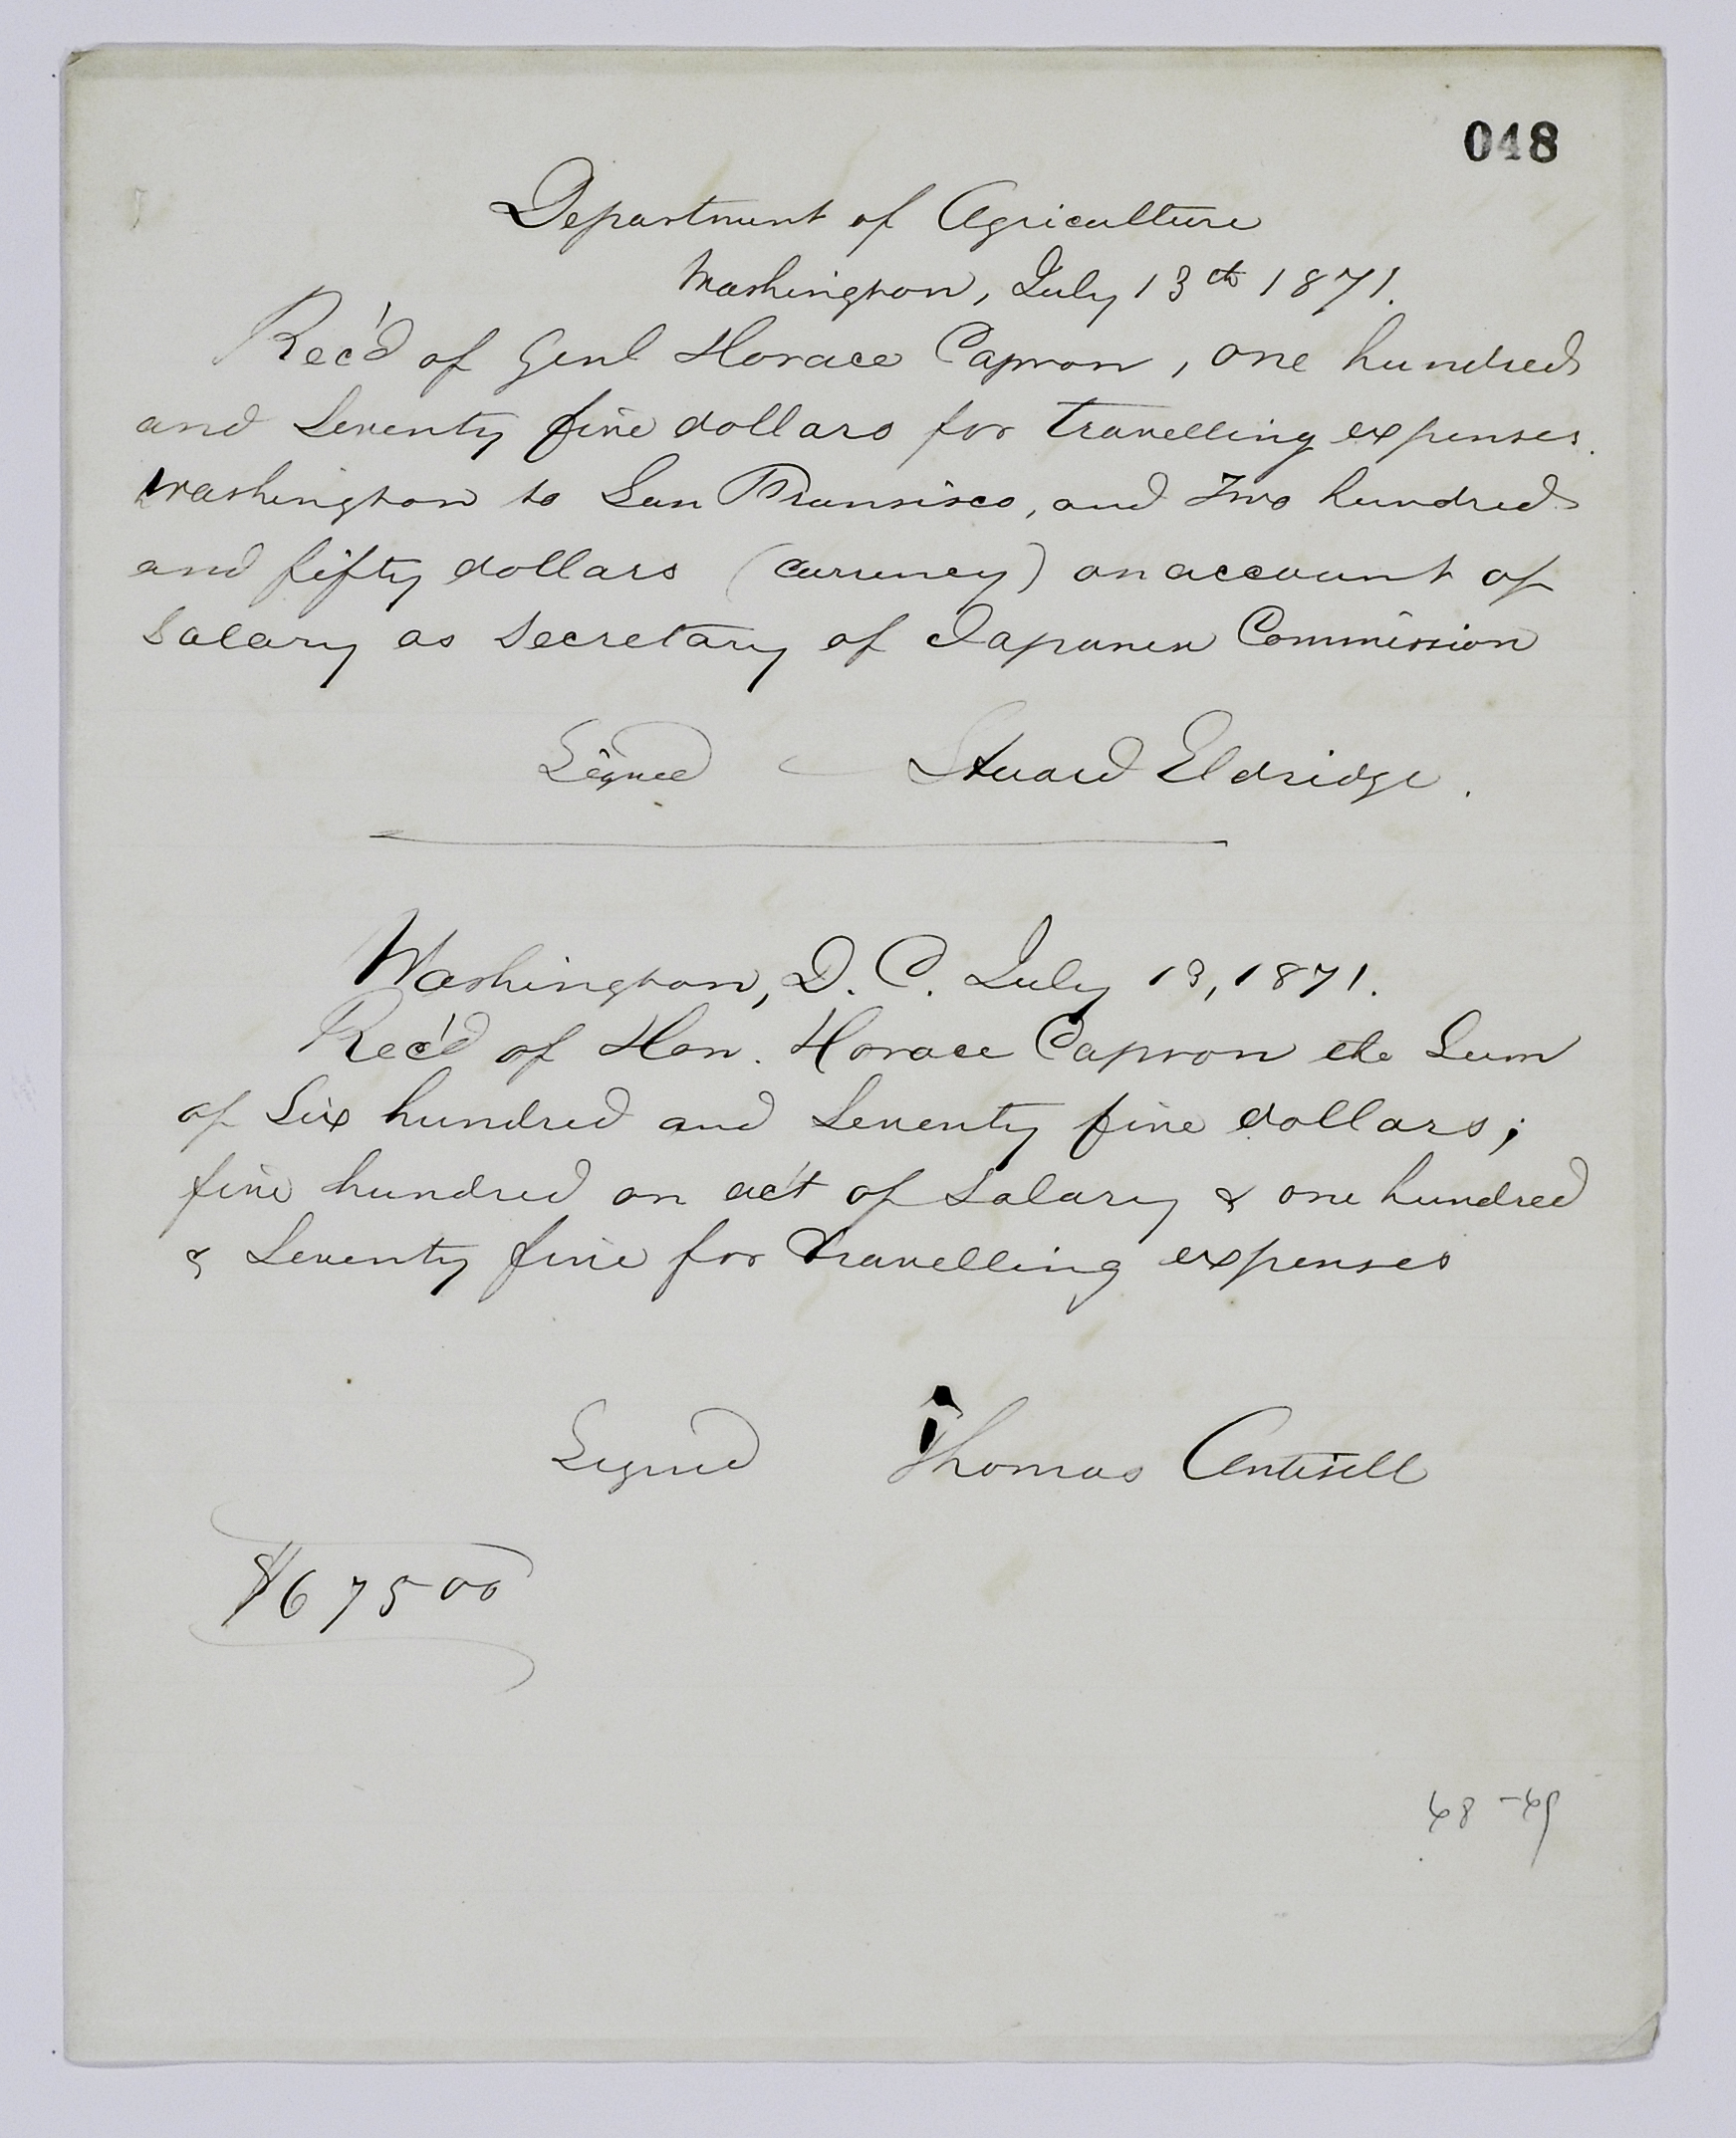 048
Department of Agriculture
Washington, July 13th 1871.
Rec'd of Genl Horace Capron, one hundred
and Seventy five dollars for travelling expenses.
Washington to San Fransisco, and Two hundred
and fifty dollars (currency) on account of
Salary as Secretary of Japanese Commission
Signed Stuard Eldridge.
Washington, D. C. July 13, 1871.
Rec'd of Hon. Horace Capron the Sum
of Six hundred and Seventy five dollars;
five hundred on ac't of Salary & one hundred
& Seventy five for travelling expenses
Signed Thomas Antisell
$675 00
48-49